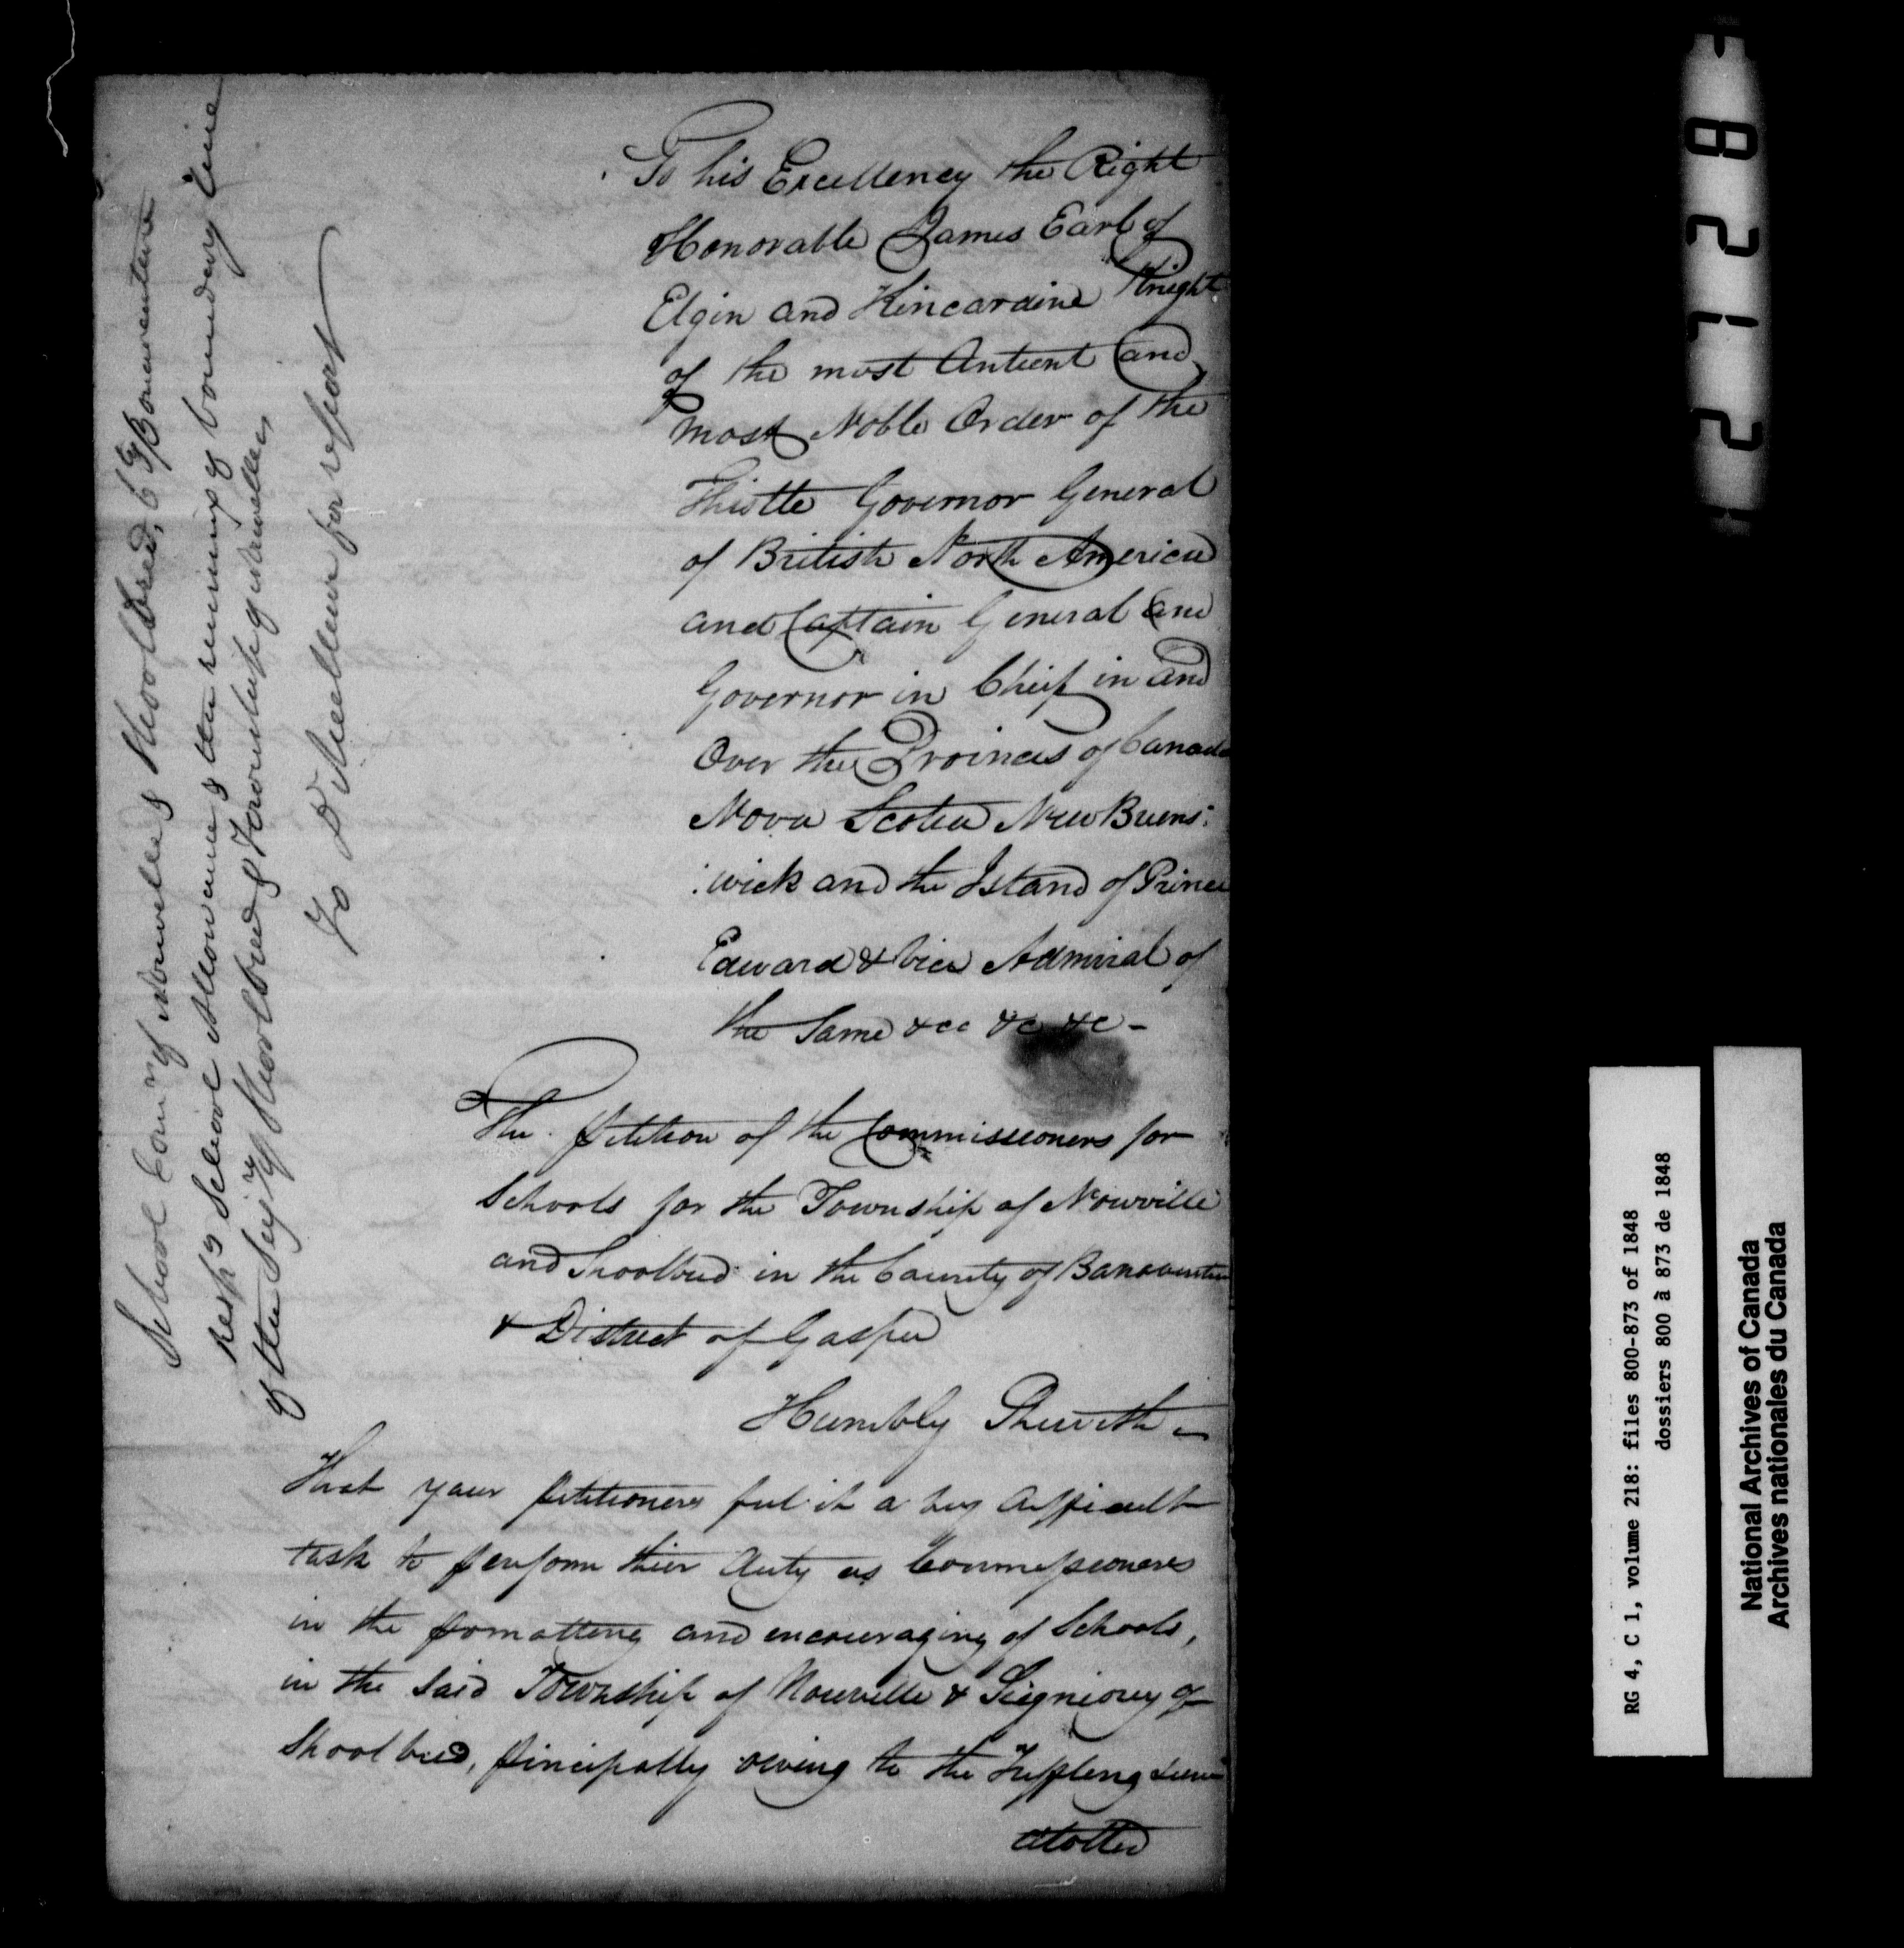 To his Excellency the Right
Honorable James Earl of
Elgin and Kincardine Knight
of the most Antient and
most Noble Order of the
Thistle Governor General
of British North America
and Captain General and
Governor in Chief in and
Over the Provinces of Canada
Nova Scotia New Bruns:
:wick and the Island of Prince
Edward & Vice Admiral of
the Same &cc &c &c -
The Petition of the Commissioners for
Schools for the Township of Nouville
and Shoolbred in the County of Banaventure
& District of Gaspee
Humbly Sheweth -
That your petitioners feel it a very difficult
task to perform thier duty as Commissioners
in the promotting and encouraging of Schools,
in the said Township of Nouville & Seigniory of
Shoolbred, principally owing to the Triffling sum
alotted
School Comrs of Nouvelle & Shoolbred, Cty Bonaventure
respg School Allowance & the running of boundary line
of the Seigry of Shoolbred & Township of Nouvelle,
To Dr Meilleur for report
8212
RG 4, C 1, volume 218: files 800-873 of 1848
dossiers 800 à 873 de 1848
National Archives of Canada
Archives nationales du Canada